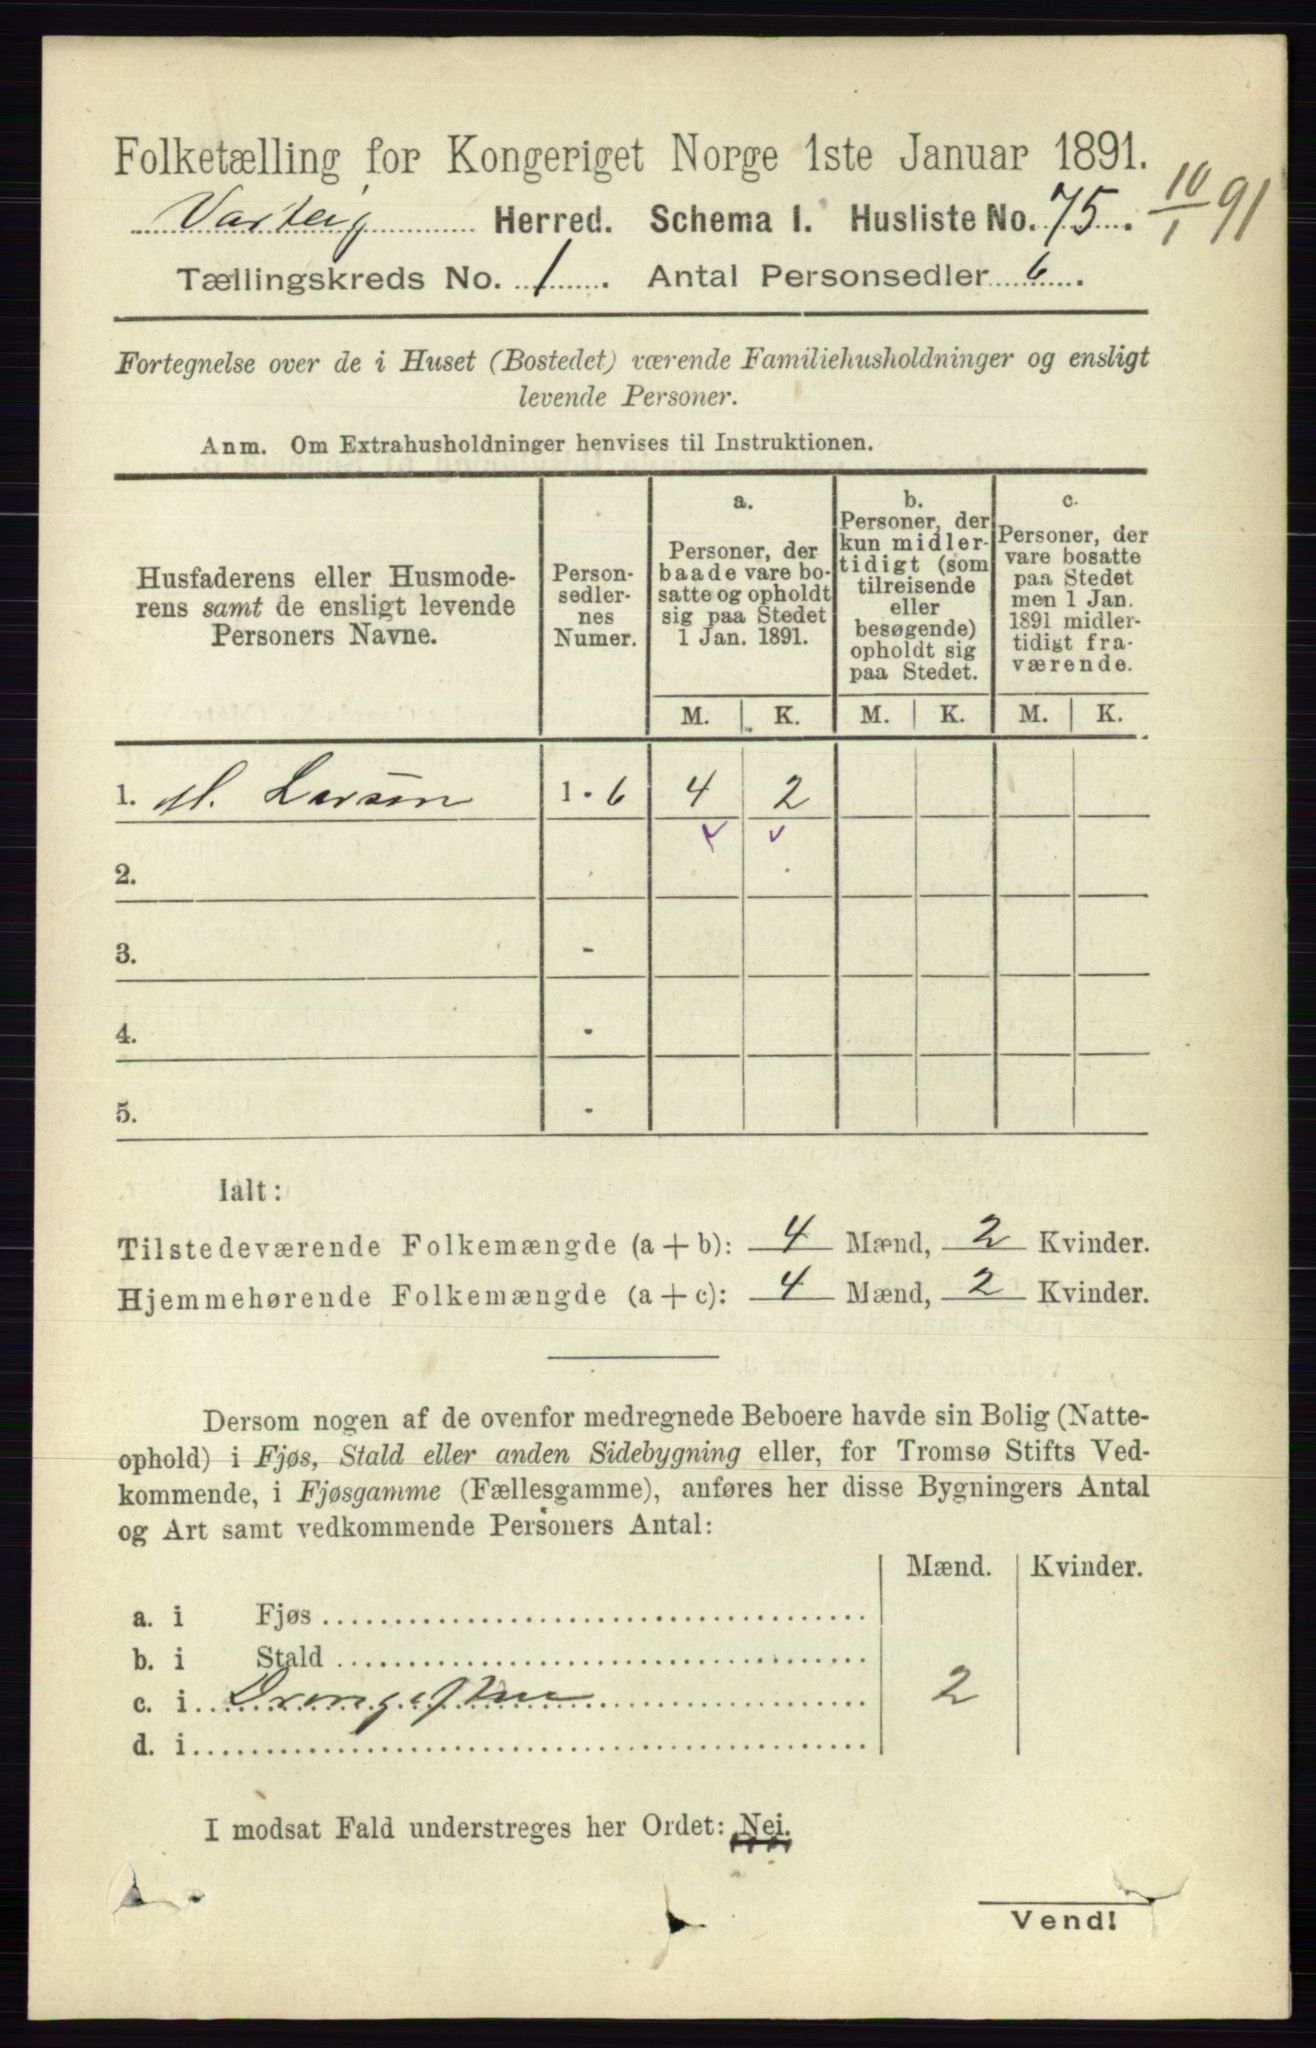 Folketælling for Kongeriget Norge 1ste Januar 1891.
Varteig Herred. Schema I. Husliste No. 75. 10/1 91
Tællingskreds No. 1. Antal Personsedler 6.
Fortegnelse over de i Huset (Bostedet) værende Familiehusholdninger og ensligt
levende Personer.
Anm. Om Extrahusholdninger henvises til Instruktionen.
Husfaderens eller Husmode-
rens samt de ensligt levende
Personers Navne.
Person-
sedler-
nes
Numer.
a.
Personer, der
baade vare bo-
satte og opholdt
sig paa Stedet
1 Jan. 1891.
b.
Personer, der
kun midler-
tidigt (som
tilreisende
eller
besøgende)
opholdt sig
paa Stedet.
c.
Personer, der
vare bosatte
paa Stedet
men 1 Jan.
1891 midler-
tidigt fra-
værende.
M. K. M. K. M. K.
1. M. Larsen 1 - 6 4 2
2.
3. -
4. -
5. -
Ialt:
Tilstedeværende Folkemængde (a + b): 4 Mænd, 2 Kvinder.
Hjemmehørende Folkemængde (a + c): 4 Mænd, 2 Kvinder.
Dersom nogen af de ovenfor medregnede Beboere havde sin Bolig (Natte-
ophold) i Fjøs, Stald eller anden Sidebygning eller, for Tromsø Stifts Ved-
kommende, i Fjøsgamme (Fællesgamme), anføres her disse Bygningers Antal
og Art samt vedkommende Personers Antal:
Mænd. Kvinder.
a. i Fjøs
b. i Stald
c. i Drengestue 2
d. i
I modsat Fald understreges her Ordet: Nei.
Vend!